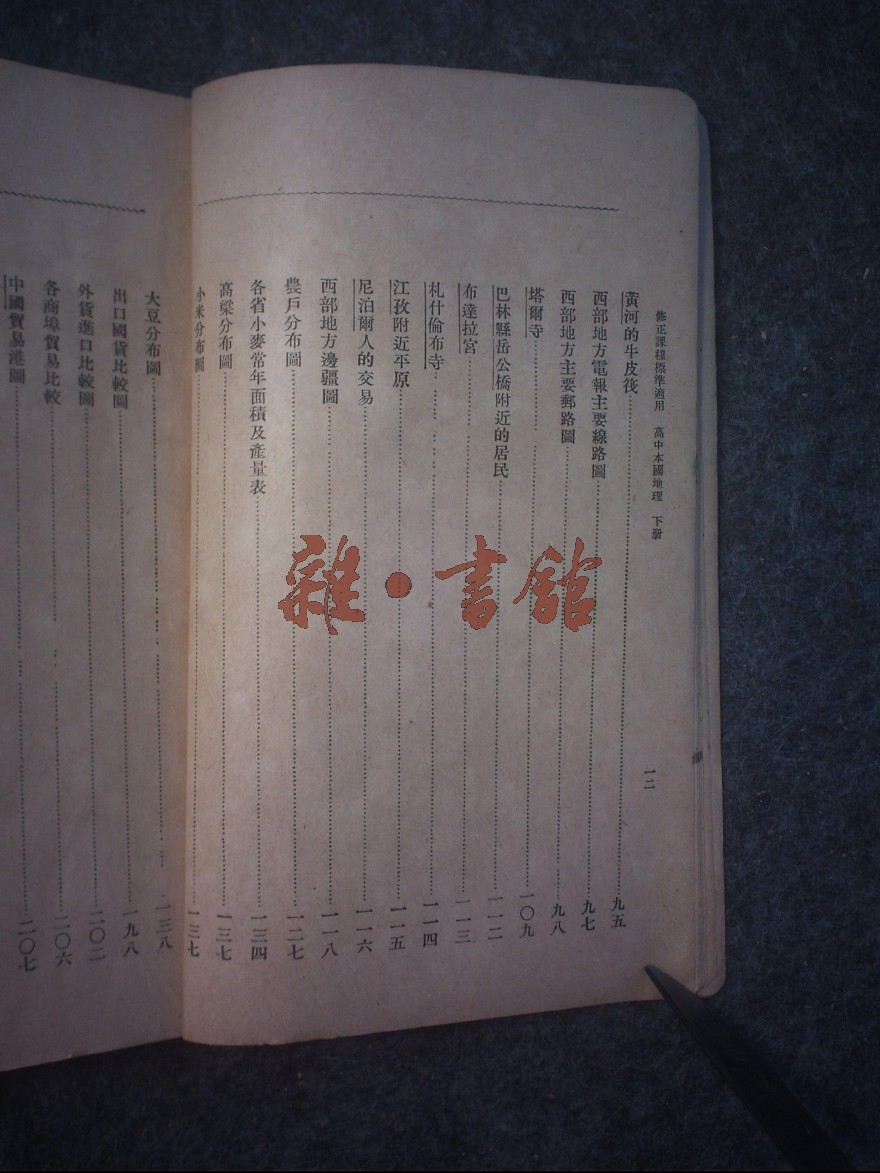 修正課程標準適用 高中本國地理 下册
一二
黃河的牛皮筏 九五
西部地方電報主要線路圖 九七
西部地方主要郵路圖 九八
塔爾寺 一〇九
巴林縣岳公橋附近的居民 一一二
布達拉宮 一一三
札什倫布寺 一一四
江孜附近平原 一一五
尼泊爾人的交易 一一六
西部地方邊疆圖 一一八
農戶分布圖 一二七
各省小麥常年面積及產量表 一三四
高粱分布圖 一三七
小米分布圖 一三七
大豆分布圖 一三八
出口國貨比較圖 一九八
外貨進口比較圖 二〇二
各商埠貿易比較 二〇六
中國貿易港圖 二〇七
雜·書館